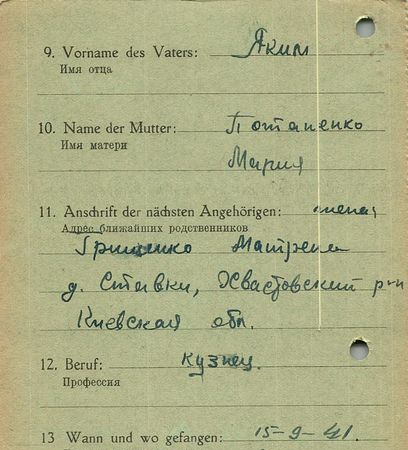 9. Vorname des Vaters: Яким
Имя отца
10. Name der Mutter: Потапенко
Имя матери
Мария
11. Anschrift der nächsten Angehörigen: жена,
Адрес ближайших родственников
Гриценко Матрена
д. Ставки, Хвастовский р-н
Киевская обл.
12. Beruf: Кузнец.
Профессия
13 Wann und wo gefangen: 15-9-41.